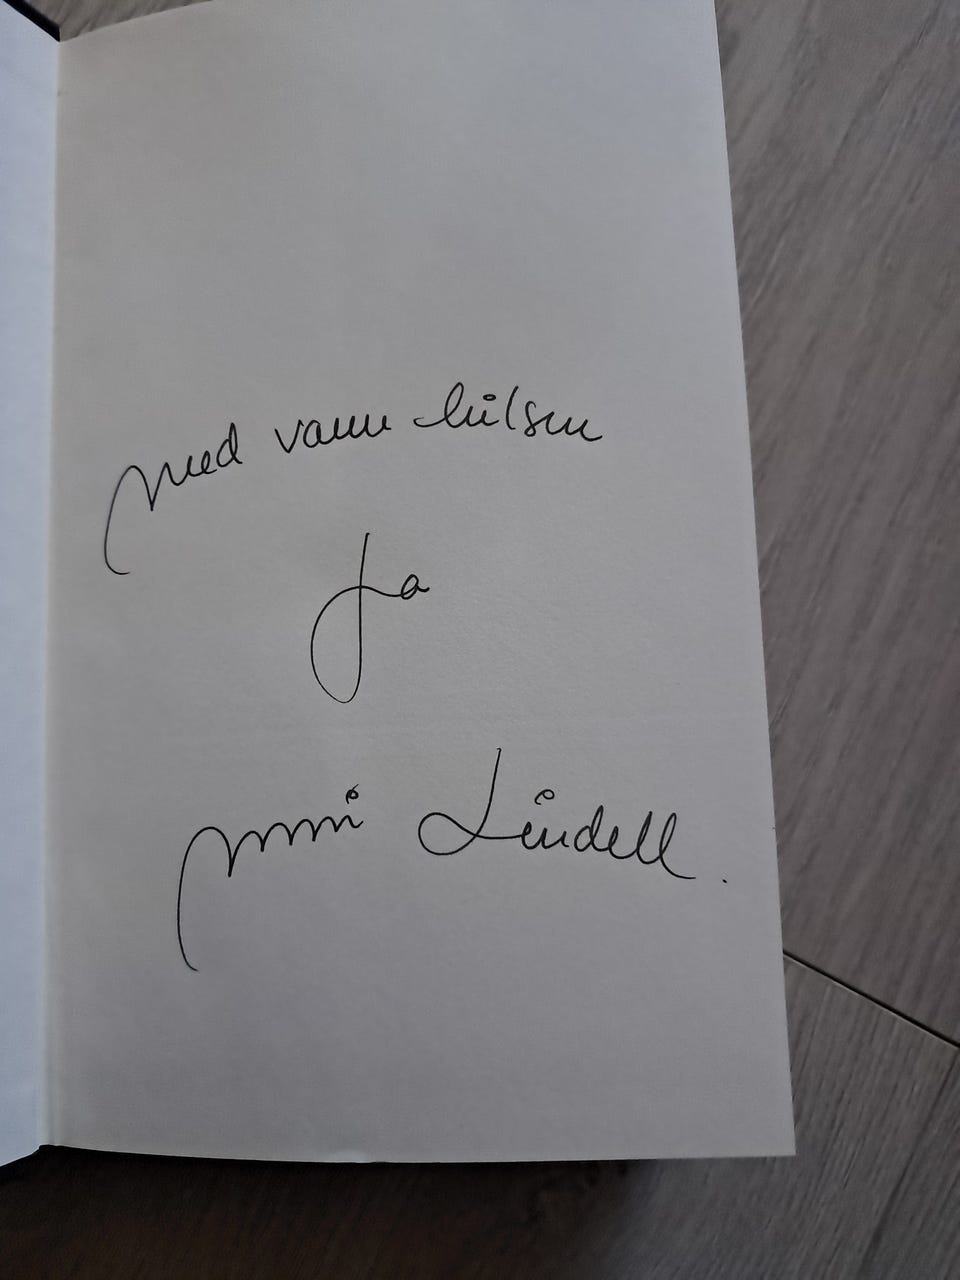 med varm hilsen
fra
Unni Lindell.